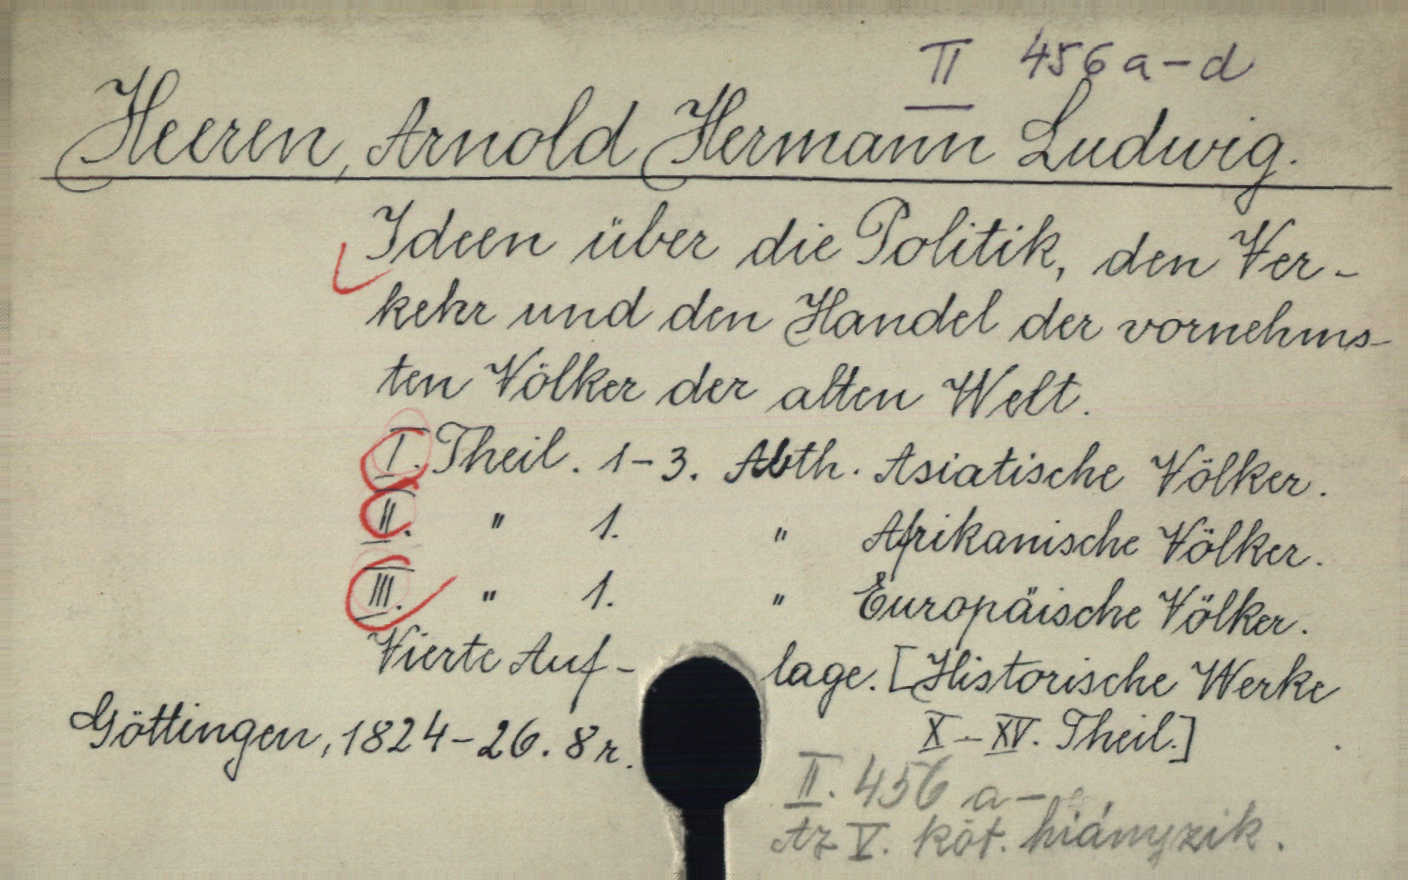 II 456 a-d
Heeren, Arnold Hermann Ludwig.
Ideen über die Politik, den Ver-
kehr und den Handel der vornehms-
ten Völker der alten Welt.
I. Theil. 1-3. Abth. Asiatische Völker.
II. " 1. " Afrikanische Völker.
III. " 1. " Europäische Völker.
Vierte Auf- lage. [Historische Werke
Göttingen, 1824-26. 8r. X-XV. Theil.]
II. 456 a-
Az V. köt. hiányzik.